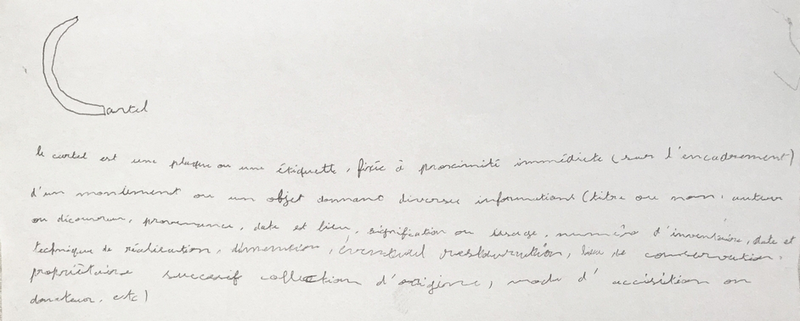 Cartel
le cartel est une plaque ou une étiquette, fixée à proximité immédiate (sur l'encadrement)
d'un monument ou un objet donnant diverses informations (titre ou nom, auteur
ou découvreur, provenance, date et lieu, signification ou usage, numéro d'inventaire, date et
technique de réalisation, dimension, éventuel restauration, lieu de conservation,
propriétaire successif collection d'origine, mode d'accisition ou
donateur, etc)